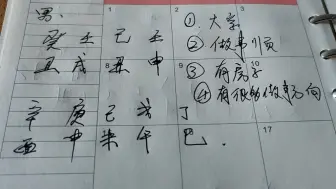 男:
癸 壬 己 壬
丑 戌 丑 申
辛 庚 己 戊 丁
酉 申 未 午 巳.
① 大学
② 做事顺
③ 有房子
④ 有很的做事方向
1
2
8
9
10
17